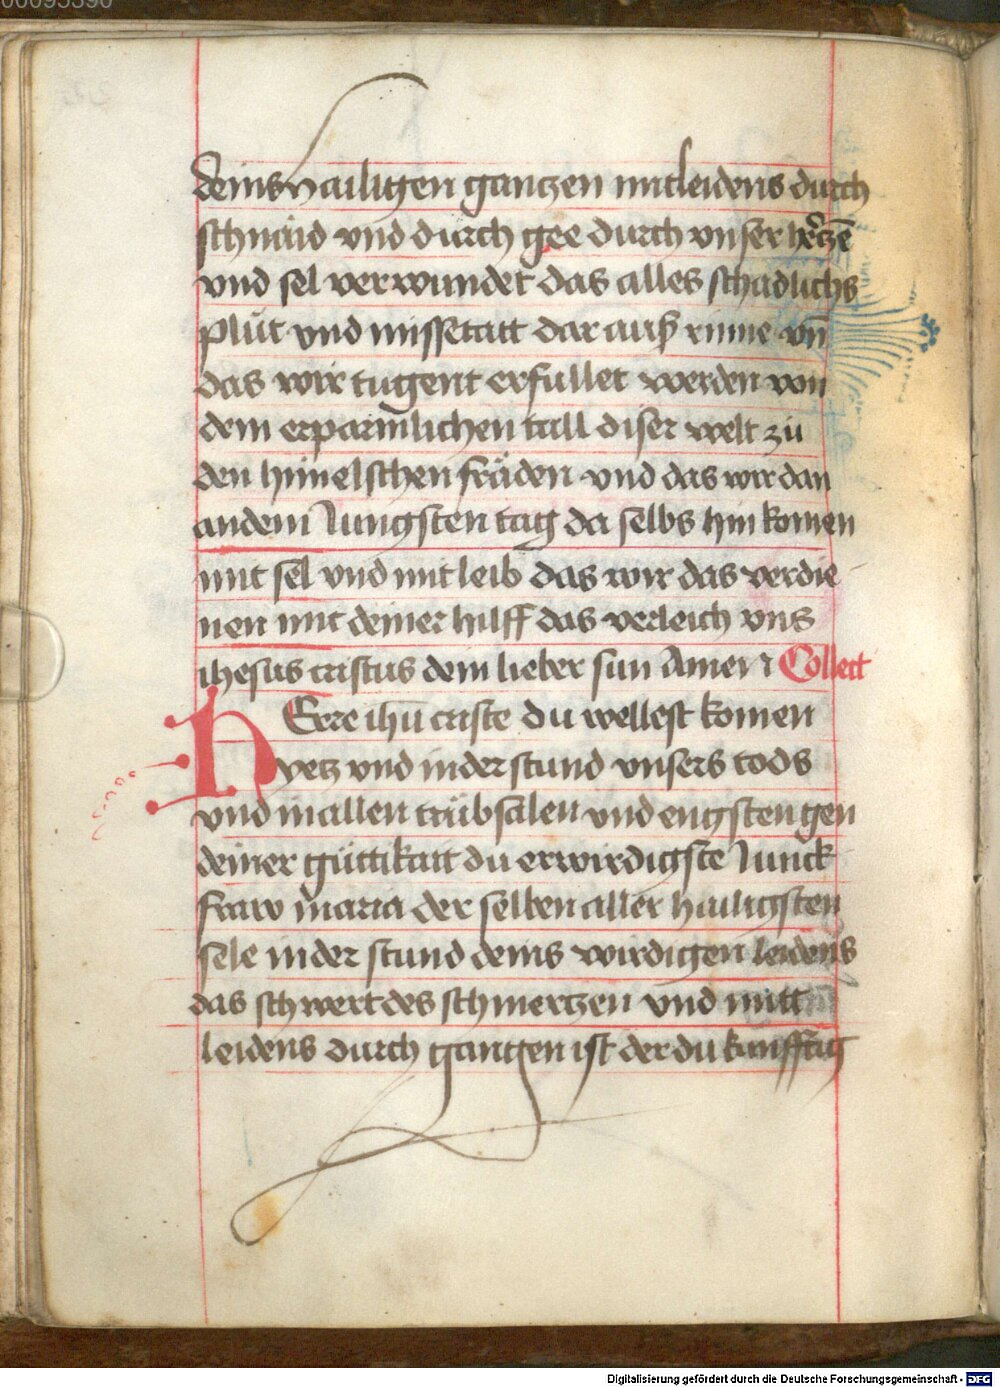 00095390
deins hailigen gantzen mitleidens durch
schnaid vnd durch gee durch vnser hertzē
vnd sel verwundet das alles schadlichs
plůt vnd missetatt dar auß rinne vn̄
das wir tugent erfullet werden von
dem erparmlichen tall diser welt zů
den himelschen fräden vnd das wir dan
andem Jungsten tag da selbs hin komen
mit sel vnd mit leib das wir das verdie
nen mit deiner hilff das verleich vns
ihesus cristus dein lieber sun Amen Collect
HErre ihū criste du wellest komen
yetz vnd inder stund vnsers tods
vnd in allen trübsalen vnd engsten gen
deiner güttikait du erwirdigste Junck
fraw maria der selben aller hailigsten
sele inder stund deins wirdigen leidens
das schwert des schmertzen vnd mitt
leidens durch gangen ist der du kunfftig
Digitalisierung gefördert durch die Deutsche Forschungsgemeinschaft - DFG